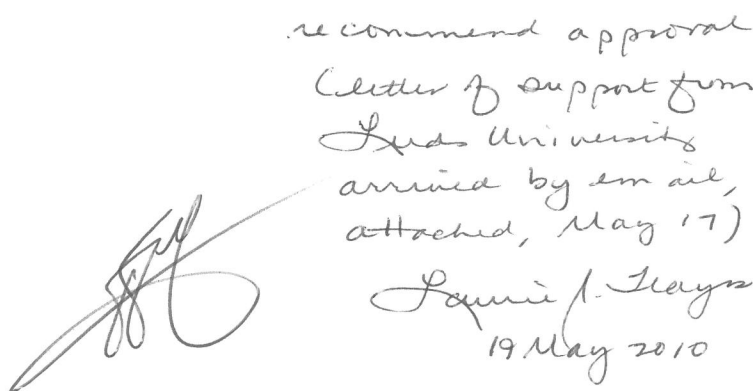 recommend approval
(letter of support from
Leeds University
arrived by email,
attached, May 17)
Laurie J.
19 May 2010